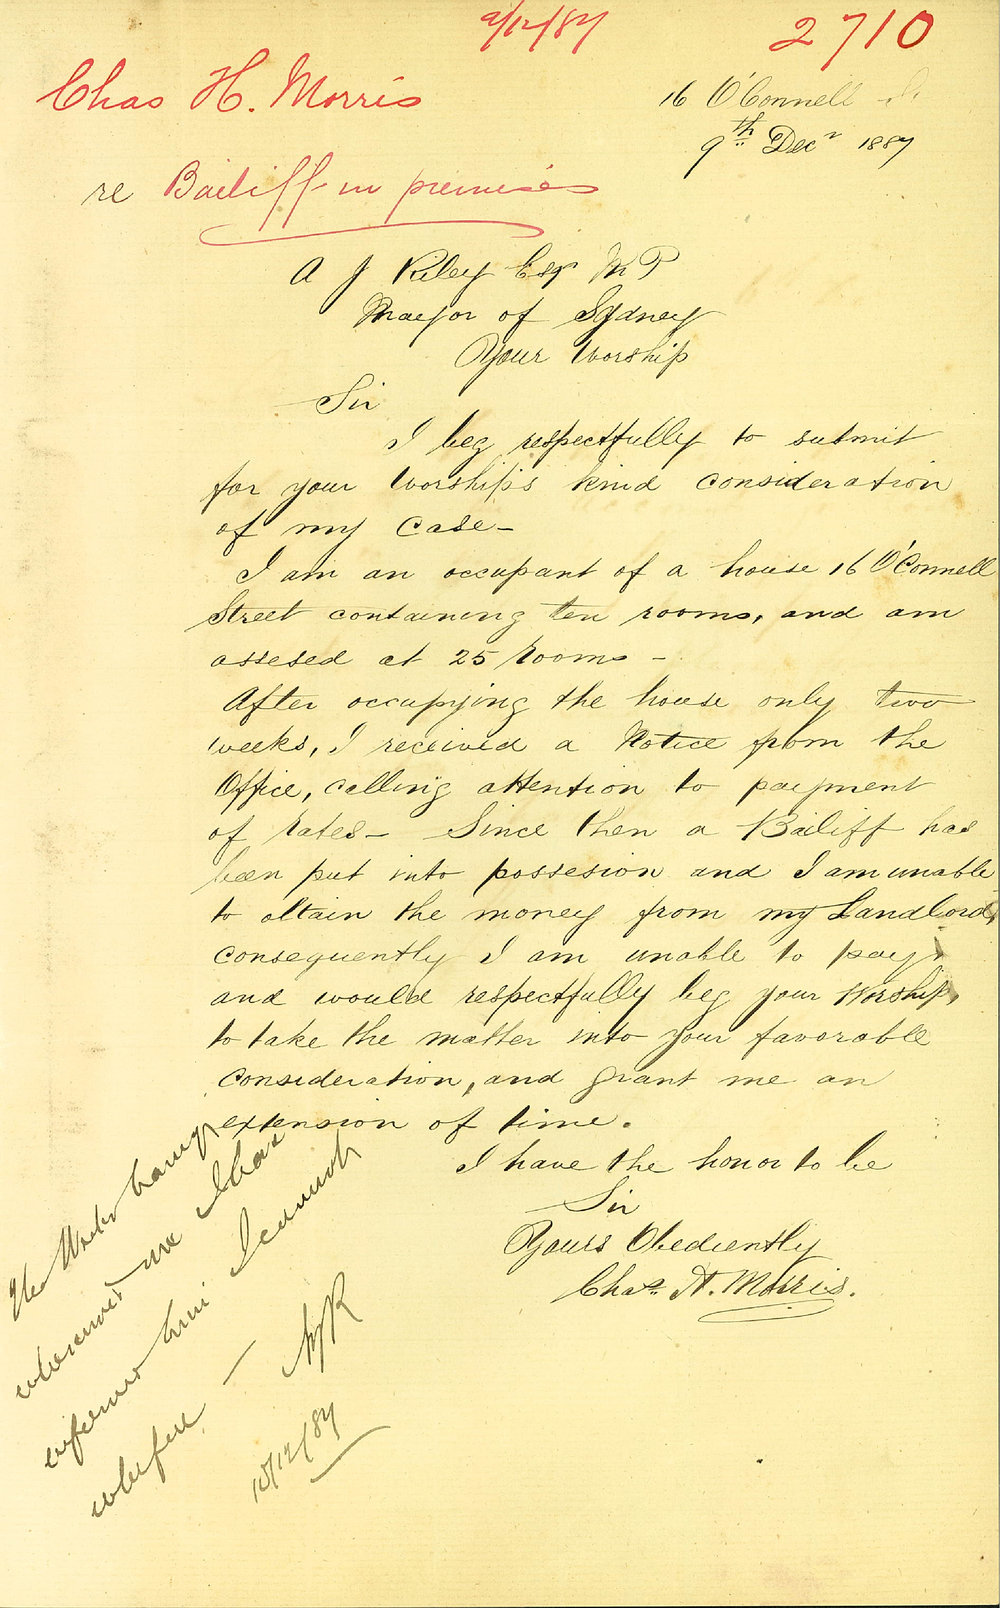 9/12/87
2710
Chas H. Morris
16 O'Connell St
9th Decr 1887
re Bailiff in premises
A J Riley Esqr M P
Mayor of Sydney
Your Worship
Sir
I beg respectfully to submit
for your Worship's kind consideration
of my case -
I am an occupant of a house 16 O'Connell
Street containing ten rooms, and am
assesed at 25 Rooms -
After occupying the house only two
weeks, I received a Notice from the
Office, calling attention to payment
of Rates - Since then a Bailiff has
been put into possesion and I am unable
to obtain the money from my Landlord,
consequently I am unable to pay,
and would respectfully beg your Worship,
to take the matter into your favorable
consideration, and grant me an
extension of time.
I have the honor to be
Sir
Yours Obediently
Chas H. Morris.
The Writer having
me I have
informed him I cannot
interfere - AJR
10/12/87